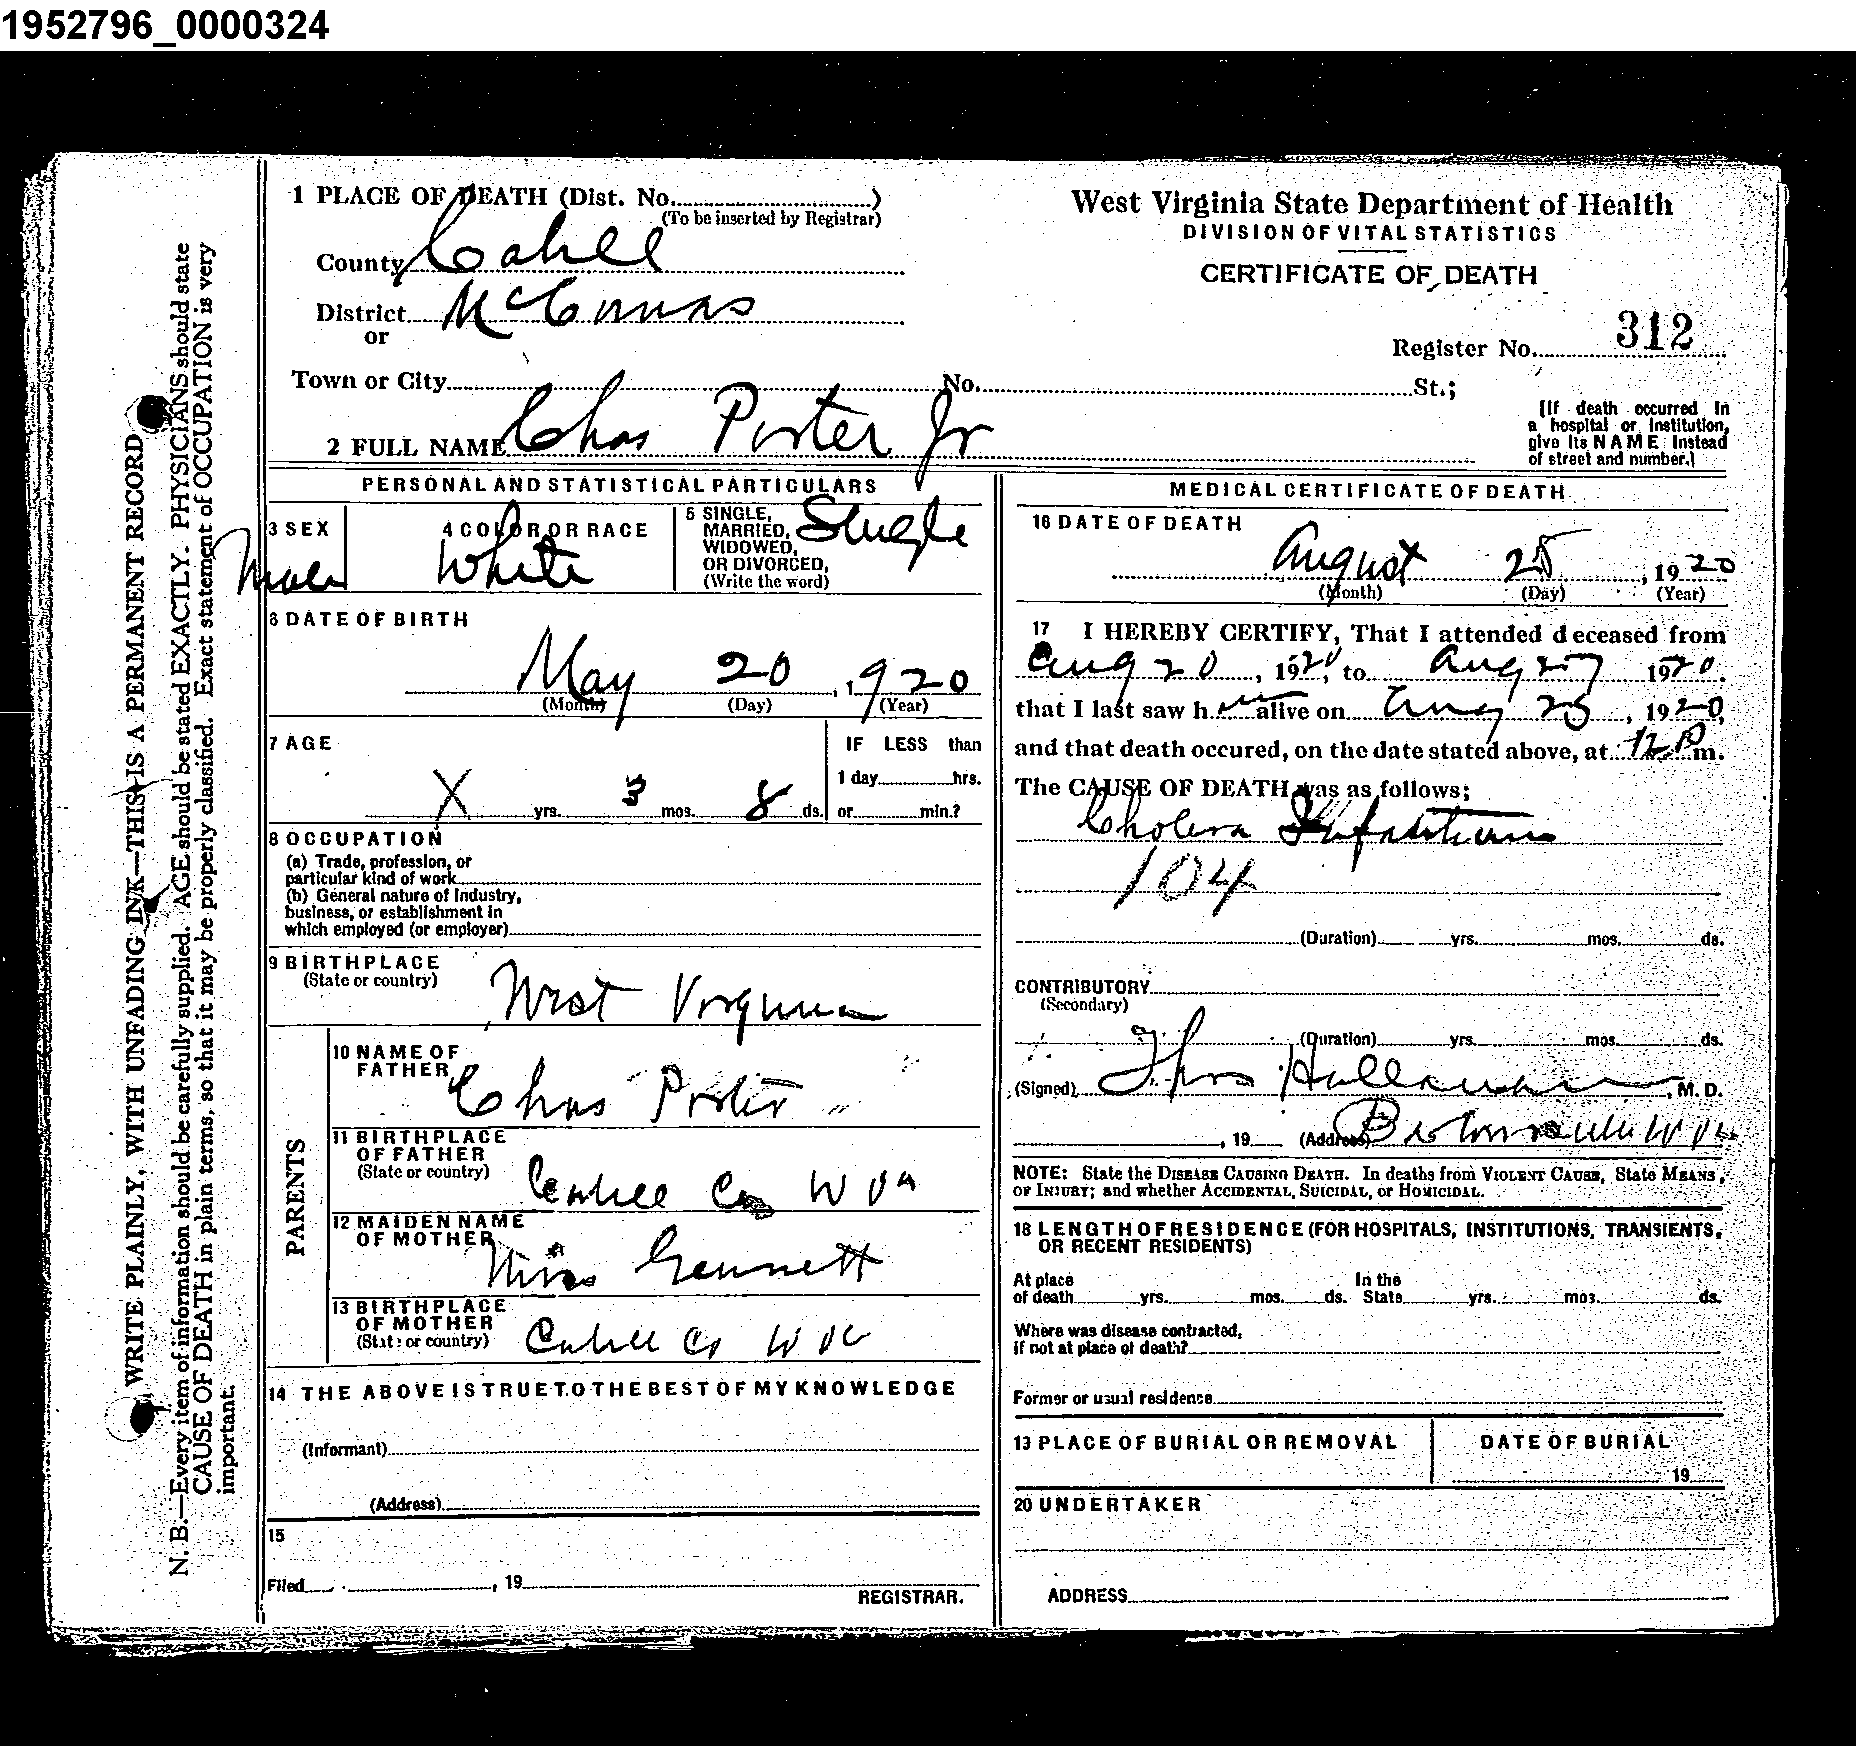 1952796_0000324
1 PLACE OF DEATH (Dist. No. )
(To be inserted by Registrar)
County Cabell
District McComas
or
Town or City No. St.;
2 FULL NAME Chas Porter Jr
West Virginia State Department of Health
DIVISION OF VITAL STATISTICS
CERTIFICATE OF DEATH
Register No. 312
[If death occurred in
a hospital or institution,
give its NAME instead
of street and number.]
WRITE PLAINLY, WITH UNFADING INK—THIS IS A PERMANENT RECORD
N. B.—Every item of information should be carefully supplied. AGE should be stated EXACTLY. PHYSICIANS should state
CAUSE OF DEATH in plain terms, so that it may be properly classified. Exact statement of OCCUPATION is very
important.
PERSONAL AND STATISTICAL PARTICULARS
3 SEX
Male
4 COLOR OR RACE
White
5 SINGLE,
MARRIED,
WIDOWED,
OR DIVORCED,
(Write the word)
Single
6 DATE OF BIRTH
May 20, 1920
(Month) (Day) (Year)
7 AGE
X yrs. 3 mos. 8 ds.
IF LESS than
1 day hrs.
or min.?
8 OCCUPATION
(a) Trade, profession, or
particular kind of work
(b) General nature of Industry,
business, or establishment in
which employed (or employer)
9 BIRTHPLACE
(State or country)
West Virginia
PARENTS
10 NAME OF
FATHER
Chas Porter
11 BIRTHPLACE
OF FATHER
(State or country)
Cabell Co W Va
12 MAIDEN NAME
OF MOTHER
Gennett
13 BIRTHPLACE
OF MOTHER
(State or country)
Cabell Co W Va
14 THE ABOVE IS TRUE TO THE BEST OF MY KNOWLEDGE
(Informant)
(Address)
15
Filed , 19
REGISTRAR.
MEDICAL CERTIFICATE OF DEATH
16 DATE OF DEATH
August 25, 1920
(Month) (Day) (Year)
17 I HEREBY CERTIFY, That I attended deceased from
Aug 20, 1920, to Aug 27 1920.
that I last saw him alive on Aug 25, 1920,
and that death occured, on the date stated above, at 12 P m.
The CAUSE OF DEATH was as follows;
Cholera Infantum
104
(Duration) yrs. mos. ds.
CONTRIBUTORY
(Secondary)
(Duration) yrs. mos. ds.
(Signed) , M. D.
, 19 (Address) W Va
NOTE: State the DISEASE CAUSING DEATH. In deaths from VIOLENT CAUSE, State MEANS,
OF INJURY; and whether ACCIDENTAL, SUICIDAL, or HOMICIDAL.
18 LENGTH OF RESIDENCE (FOR HOSPITALS, INSTITUTIONS, TRANSIENTS,
OR RECENT RESIDENTS)
At place In the
of death yrs. mos. ds. State yrs. mos. ds.
Where was disease contracted,
if not at place of death?
Former or usual residence
13 PLACE OF BURIAL OR REMOVAL
DATE OF BURIAL
19
20 UNDERTAKER
ADDRESS